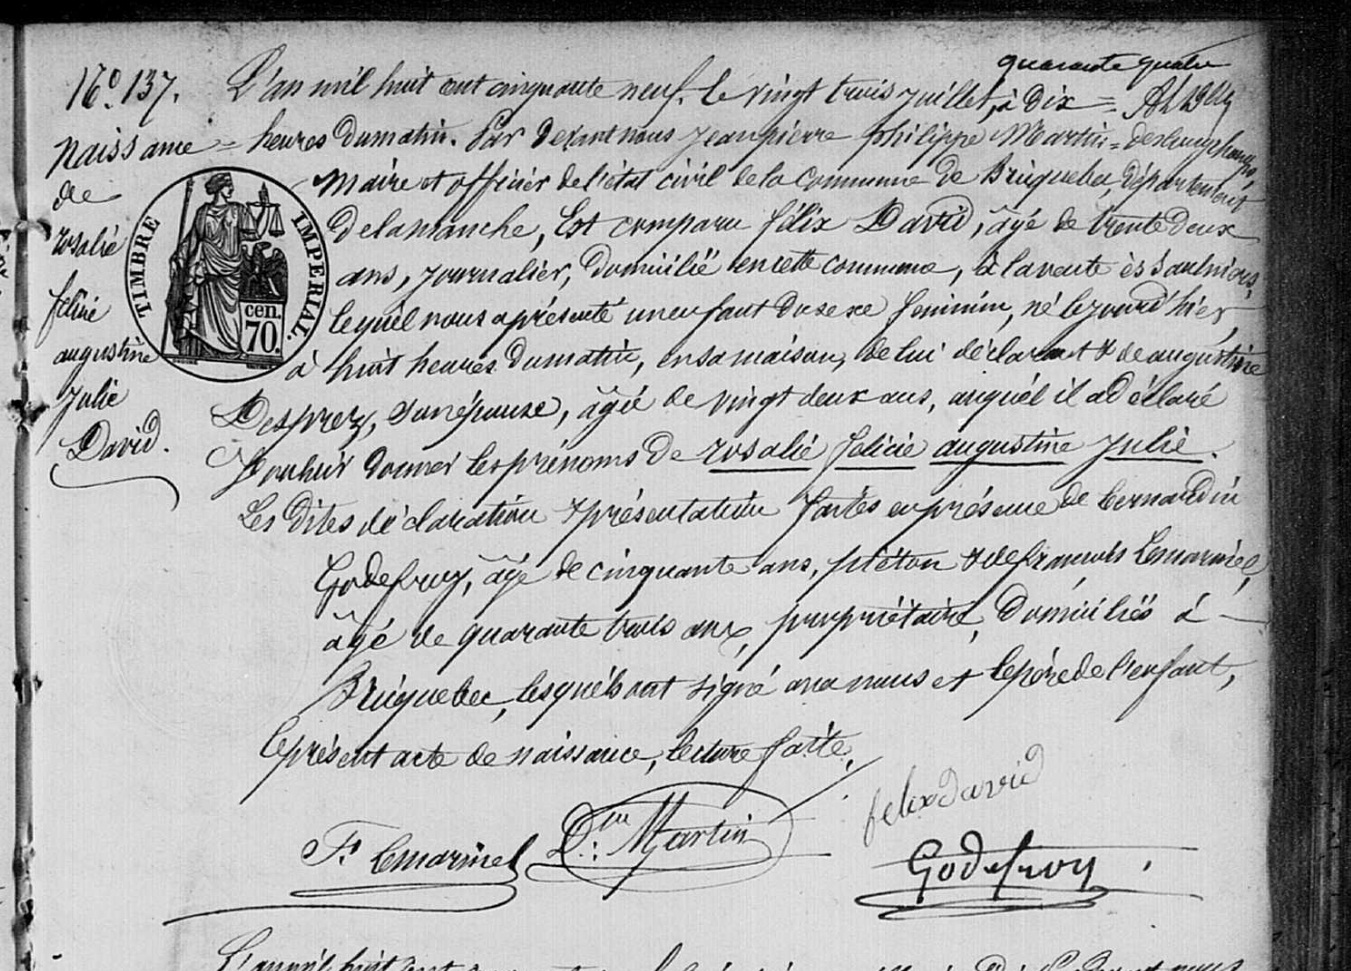 quarante quatre
N.o 137.
naissance
de
rosalie
félicie
augustine
julie
David.
L'an mil huit cent cinquante neuf, le vingt trois juillet, à dix =
heures du matin. Par devant nous jean pierre philippe Martin = deslongchamps,
maire et officier de l'état civil de la commune de Bricquebec, département
de la manche, Est comparu félix David, âgé de trente deux
ans, journalier, domicilié en cette commune, à la vente ès Saulniers,
lequel nous a présenté un enfant du sexe féminin, né le jour d'hier,
à huit heures du matin, en sa maison, de lui déclarant & de augustine
Desprez, son épouse, âgée de vingt deux ans, auquel il a déclaré
vouloir donner les prénoms de rosalie félicie augustine julie.
Les dites déclaration & présentation faites en présence de bernardin
Godefroy, âgé de cinquante ans, piéton & de françois Lemarinel,
âgé de quarante trois ans, propriétaire, domiciliés à
Bricquebec, lesquels ont signé avec nous et le père de l'enfant,
le présent acte de naissance, lecture faite.
TIMBRE IMPERIAL.
cen.
70.
felix David
F.s lemarinel D. Martin
Godefroy
L'an mil huit cent